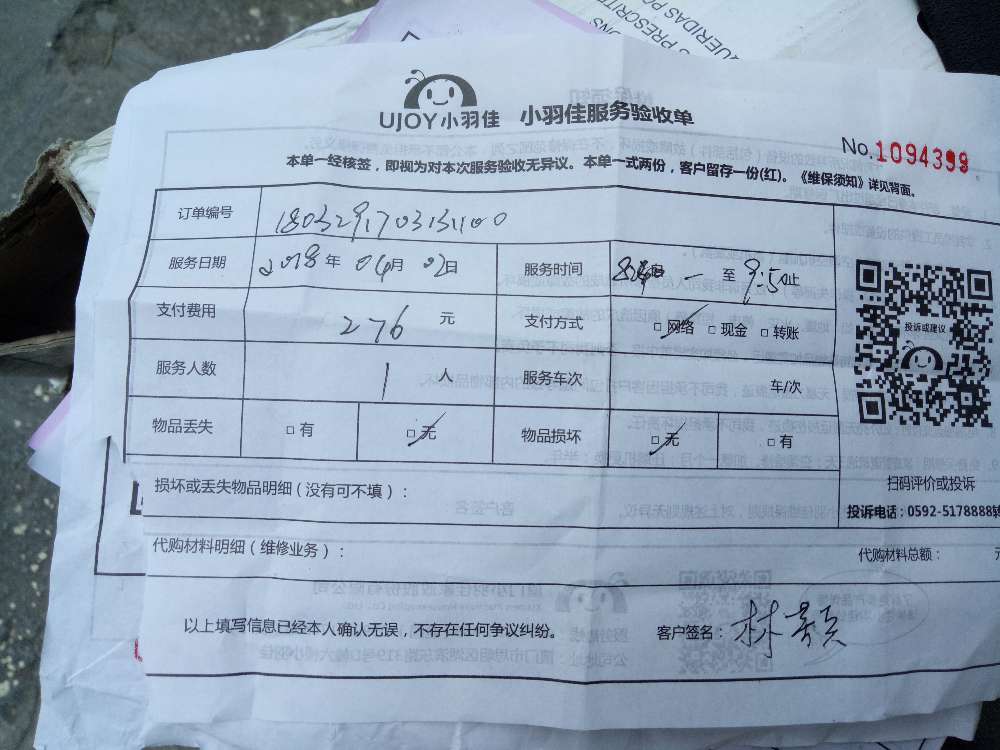 S PRESCRITE
QUERIDAS PO
ONS
UJOY小羽佳 小羽佳服务验收单
No.1094399
本单一经核签，即视为对本次服务验收无异议。本单一式两份，客户留存一份(红)。《维保须知》详见背面。
订单编号
服务日期 2018年 04月 02日 服务时间 至 9:50止
支付费用 276 元 支付方式 □网络 □现金 □转账
服务人数 1 人 服务车次 车/次
物品丢失 □有 □无 物品损坏 □无 □有
投诉或建议
损坏或丢失物品明细（没有可不填）：
扫码评价或投诉
投诉电话：0592-5178888转
代购材料明细（维修业务）：
代购材料总额：
以上填写信息已经本人确认无误，不存在任何争议纠纷。 客户签名：林